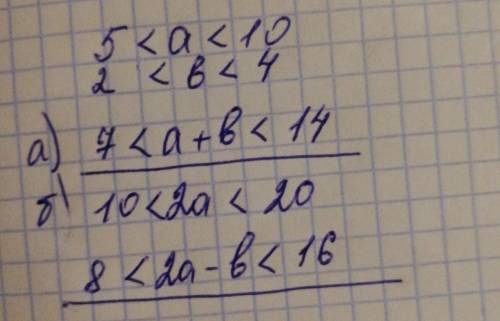 5 < a < 10
2 < в < 4
а) 7 < a + в < 14
б) 10 < 2a < 20
8 < 2a - в < 16